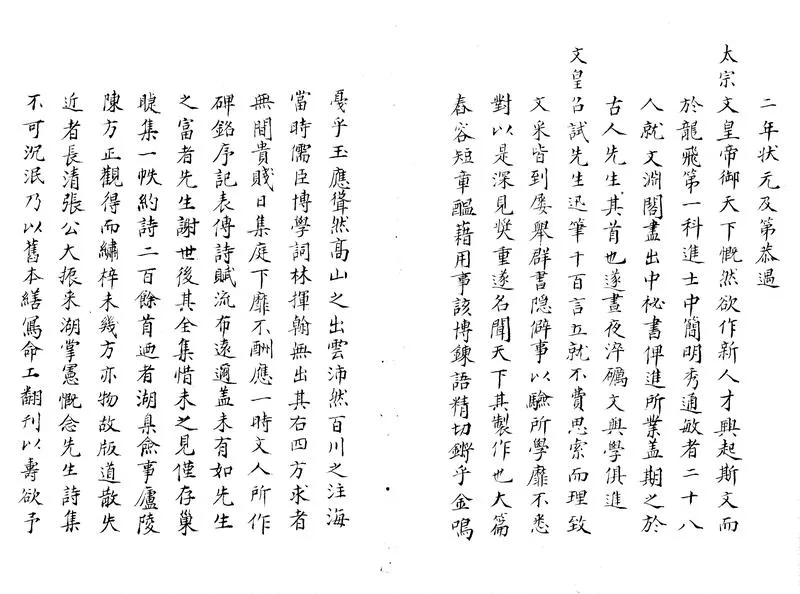 二年狀元及第恭遇
太宗文皇帝御天下慨然欲作新人才興起斯文而
於龍飛第一科進士中簡明秀通敏者二十八
人就文淵閣盡出中秘書俾進所業蓋期之於
古人先生其首也遂晝夜淬礪文與學俱進
文皇召試先生迅筆千百言立就不費思索而理致
文采皆到屢舉群書隱僻事以驗所學靡不悉
對以是深見獎重遂名聞天下其製作也大篇
舂容短章醞藉用事該博鍊語精切鏘乎金鳴
戛乎玉應聳然高山之出雲沛然百川之注海
當時儒臣博學詞林揮翰無出其右四方求者
無間貴賤日集庭下靡不酬應一時文人所作
碑銘序記表傳詩賦流布遠邇蓋未有如先生
之富者先生謝世後其全集惜未之見僅存巢
睫集一帙約詩二百餘首廼者湖臬僉事廬陵
陳方正觀得而繡梓未幾方亦物故版道散失
近者長清張公大振來湖掌憲慨念先生詩集
不可沉泯乃以舊本繕寫命工翻刊以壽欲予